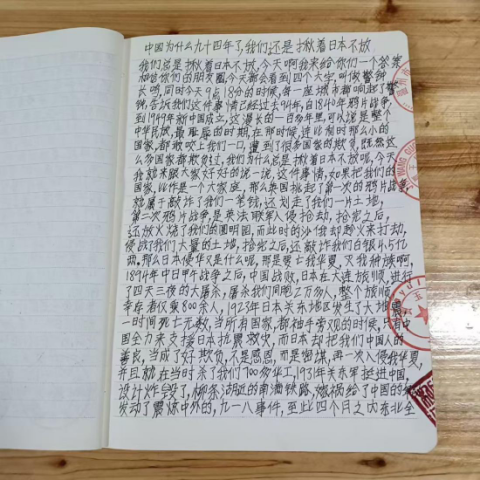 中国为什么九十四年了,我们还是揪着日本不放
我们总是揪着日本不放,今天啊我来给你们一个答案
相信你们的朋友圈,今天都会看到四个大字,叫做警钟
长鸣,同时今天9点18分的时候,每一座城市都响起了警
钟,告诉我们这件事情已经过去94年,自1840年鸦片战争,
到1949年新中国成立,这漫长的一百多年里,可以说是整个
中华民族,最屈辱的时期,在那时候连比利时那么小的
国家,都敢咬上我们一口,遭到了很多国家的欺负,既然这
么多国家都欺负过,我们为什么总是揪着日本不放呢,今天
我就来跟大家好好的说一说,这件事情,如果把我们的
国家,比作是一个大家庭,那么英国挑起了第一次的鸦片战争
就属于敲诈了我们一笔钱,还划走了我们一片土地,
第二次鸦片战争,是英法联军入侵抢劫,抢完之后,
还放火烧了我们的圆明园,而此时的沙俄却趁火来打劫,
侵占了我们大量的土地,抢完之后,还敲诈我们白银4.5亿
两,那么日本侵华又是什么呢,那是要亡我华夏,灭我种族啊,
1894年中日甲午战争之后,中国战败,日本在大连旅顺,进行
了四天三夜的大屠杀,屠杀我们同胞2万多人,整个旅顺
幸存者仅剩800余人,1923年日本关东地区发生了大地震,
一时间死亡无数,当所有国家,都袖手旁观的时候,只有中
国全力来支援日本抗震救灾,而日本却把我们中国人的
善良,当成了好欺负,不是感恩,而是密谋,再一次入侵我华夏,
并且就在当时杀了我们700多华工,1931年关东军挺进中国,
设计炸毁了,柳条湖附近的南满铁路,嫁祸给了中国的
发动了震惊中外的,九一八事件,至此四个月之内东北全